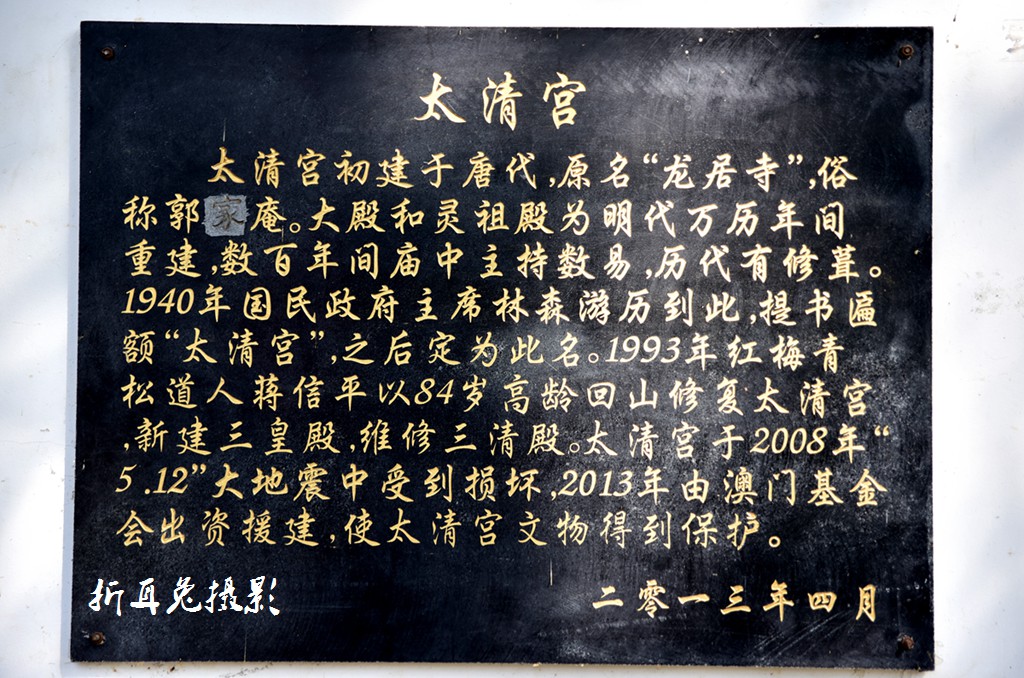 太清宫
太清宫初建于唐代,原名“龙居寺”,俗
称郭家庵。大殿和灵祖殿为明代万历年间
重建,数百年间庙中主持数易,历代有修葺。
1940年国民政府主席林森游历到此,提书匾
额“太清宫”,之后定为此名。1993年红梅青
松道人蒋信平以84岁高龄回山修复太清宫
,新建三皇殿,维修三清殿。太清宫于2008年“
5.12”大地震中受到损坏,2013年由澳门基金
会出资援建,使太清宫文物得到保护。
二零一三年四月
折耳兔摄影